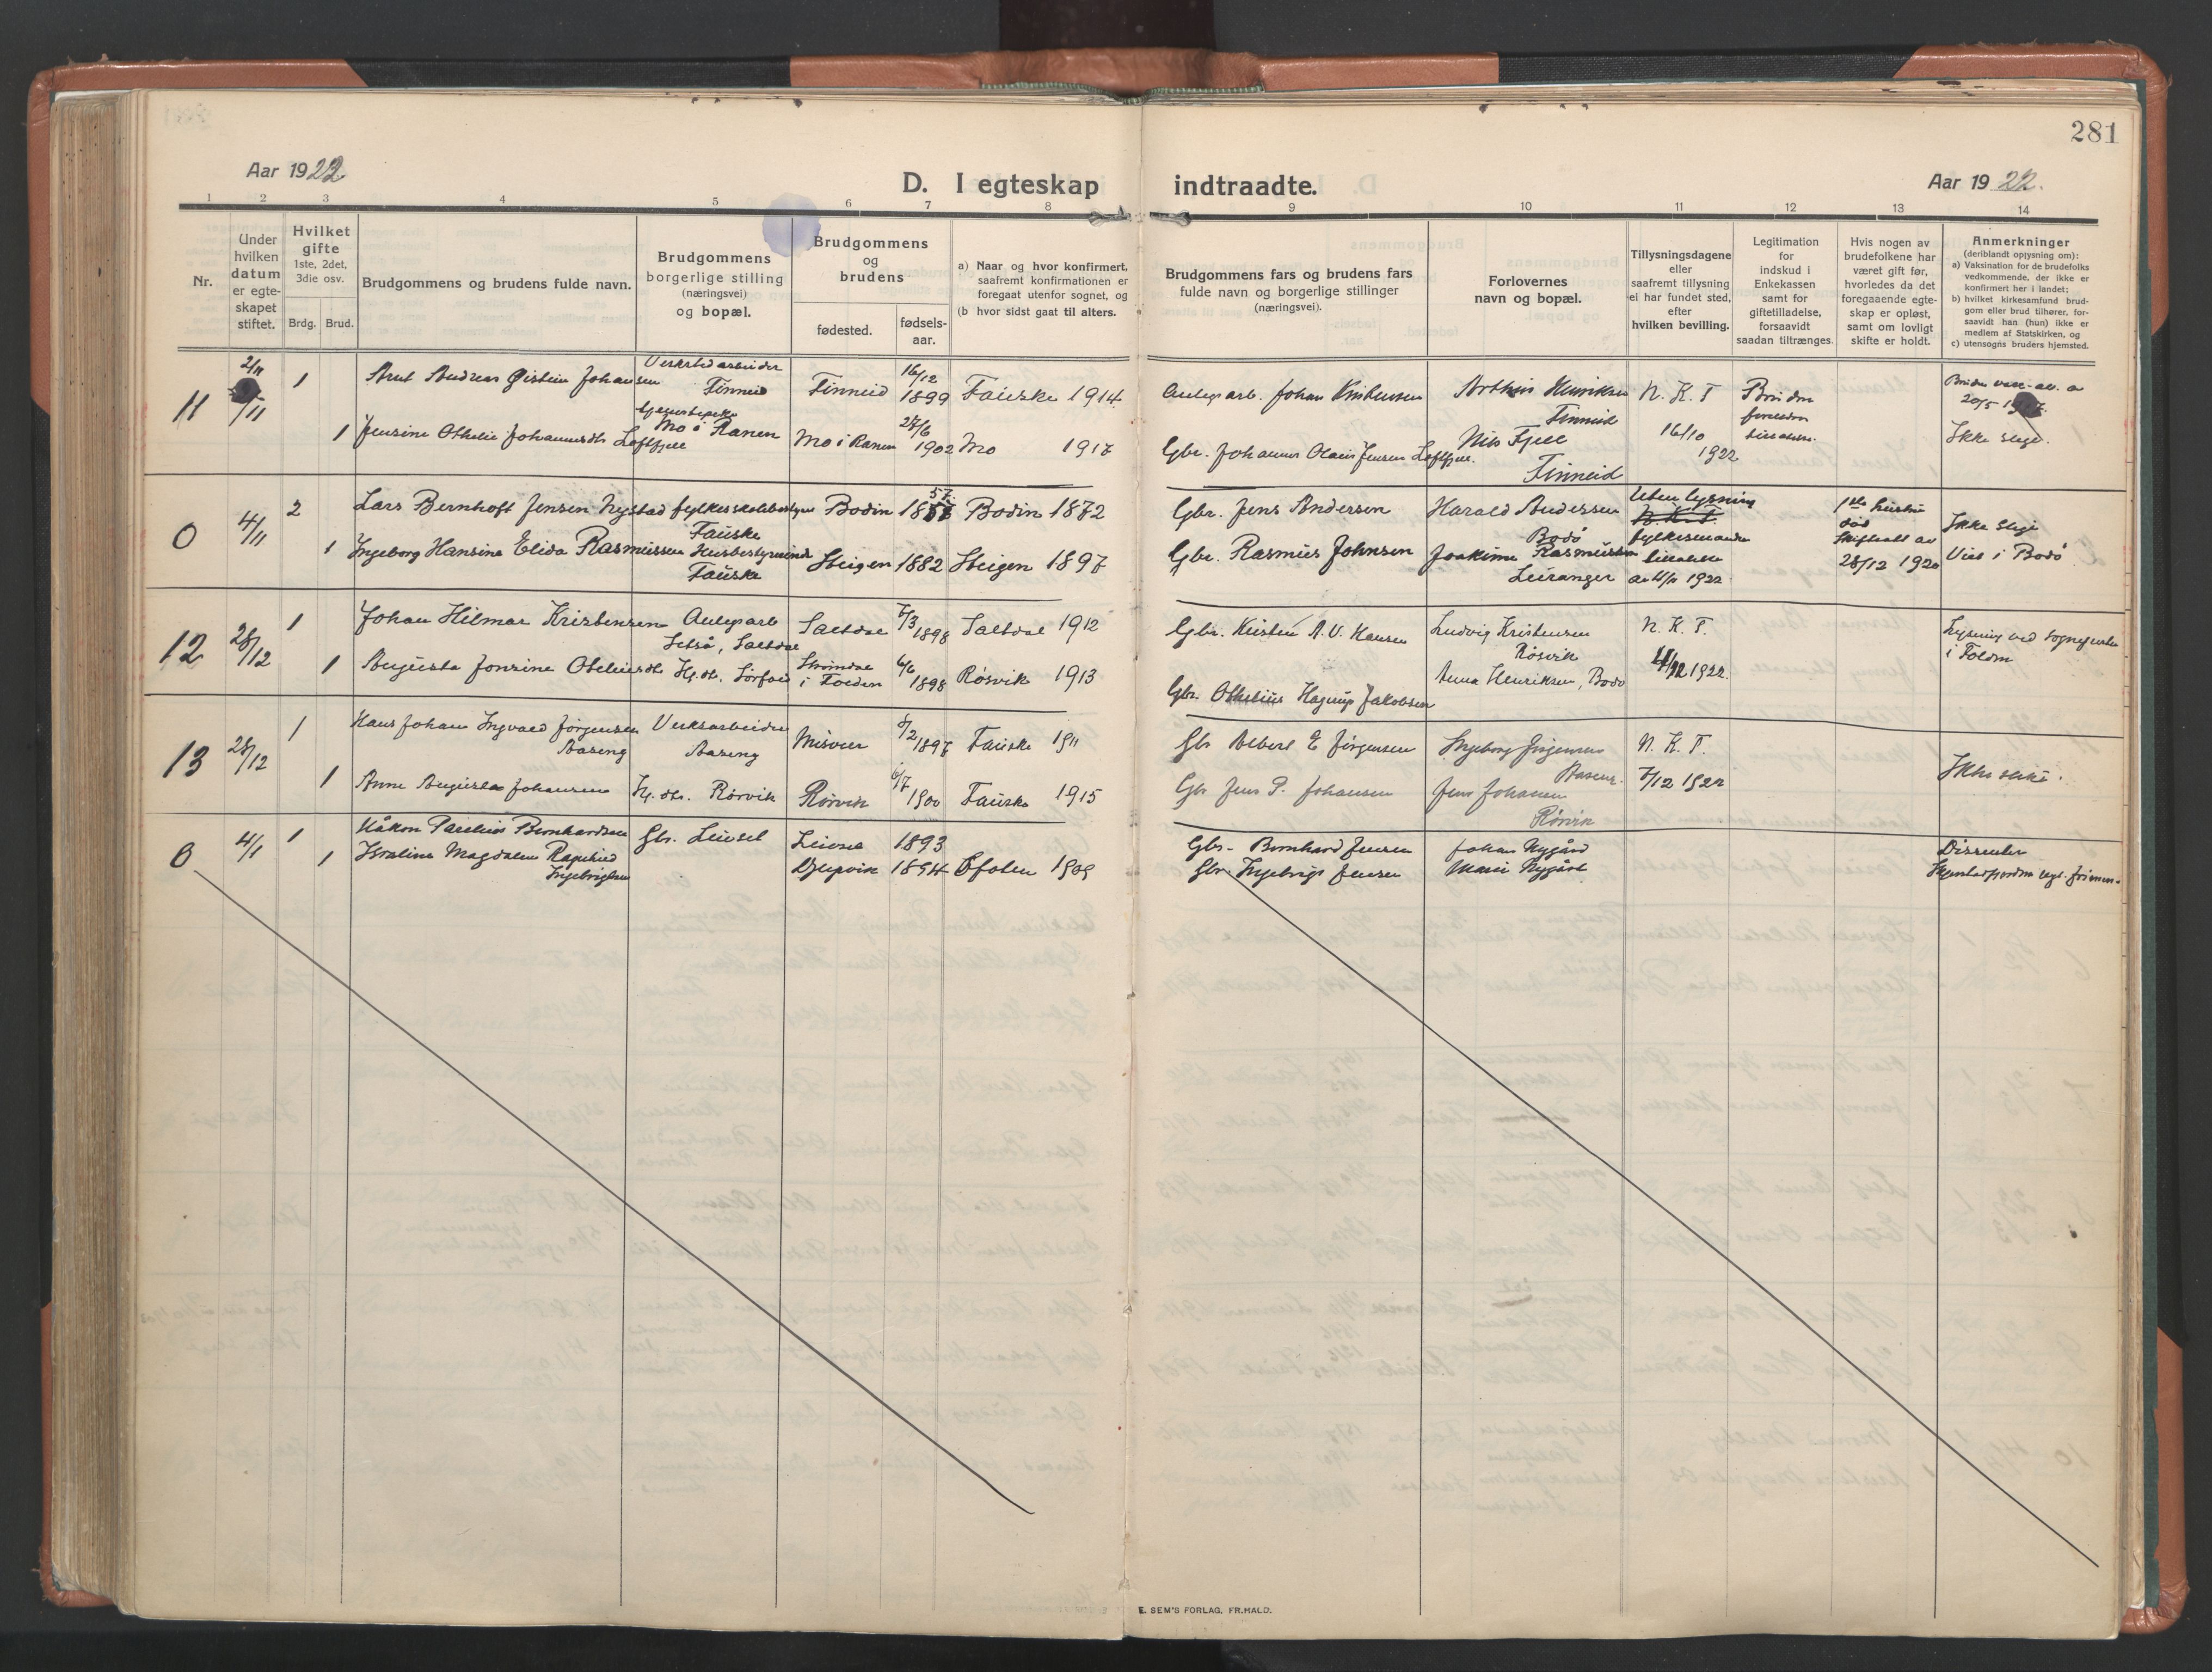 281
Aar 1922
D. I egteskap indtraadte.
Aar 1922.
1 2 3 4 5 6 7 8 9 10 11 12 13 14
Nr.
Under
hvilken
datum
er egte-
skapet
stiftet.
Hvilket
gifte
1ste, 2det,
3die osv.
Brdg. Brud.
Brudgommens og brudens fulde navn.
Brudgommens
borgerlige stilling
(næringsvei)
og bopæl.
Brudgommens
og
brudens
fødested.
fødsels-
aar.
a) Naar og hvor konfirmert,
saafremt konfirmationen er
foregaat utenfor sognet, og
(b hvor sidst gaat til alters.
Brudgommens fars og brudens fars
fulde navn og borgerlige stillinger
(næringsvei).
Forlovernes
navn og bopæl.
Tillysningsdagene
eller
saafremt tillysning
ei har fundet sted,
efter
hvilken bevilling.
Legitimation
for
indskud i
Enkekassen
samt for
giftetilladelse,
forsaavidt
saadan tiltrænges.
Hvis nogen av
brudefolkene har
været gift før,
hvorledes da det
foregaaende egte-
skap er opløst,
samt om lovligt
skifte er holdt.
Anmerkninger
(deriblandt opjysning om):
a) Vaksination for de brudefolks
vedkommende, der ikke er
konfirmert her i landet;
b) hvilket kirkesamfund brud-
gom eller brud tilhører, for-
saavidt han (hun) ikke er
medlem af Statskirken, og
c) utensogns bruders hjemsted.
11 2/11 1 Arnt Andreas Øistein Johansen Verkstedarbeider Finneid Finneid 16/12 1899 Fauske 1914 Anlegsarb. Johan Kristensen Arthur Henriksen Finneid N. K. T. 16/10 1922
1 Jensine Othelie Johannesdtr Løftfjell Mo i Ranen Mo i Ranen 27/6 1902 Mo 1917 Gbr. Johannes Olaus Jensen Løftfjell. Nils Fjell Finneid Ikke slegt.
0 4/11 2 Lars Bernhoft Jensen Nystad fylkesskolebestyrer Fauske Bodin 1857 Bodin 1872 Gbr. Jens Andersen Harald Andersen Bodø Uten lysning N.K.T. 1ste hustru død Ikke slegt
1 Ingeborg Hansine Elida Rasmussen Husbestyrerinde Fauske Steigen 1882 Steigen 1897 Gbr. Rasmus Johnsen Joakime Rasmussen Leiranger av 4/11 1922 28/12 1920 Viet i Bodø
12 28/12 1 Johan Hilmar Kristensen Anlegsarb Setså, Saltdal Saltdal 7/3 1898 Saltdal 1912 Gbr. A. V. Hansen Ludvig Kristensen Røsvik N. K. T. 1922. Lysning ved sognepresten i Folden
1 Augusta Jonsine Oteliusdtr Hj. dtr. Sørfold i Folden 6/6 1898 Røsvik 1913 Gbr. Othelius Hagerup Jakobsen Anna Henriksen, Bodø
13 28/12 1 Hans Johan Ingvald Jørgensen Aaseng Verksarbeider Aaseng Misvær 5/2 1897 Fauske 1911 Gbr Albert E Jørgensen Ingeborg Jørgensen Aaseng. N. K. T. 7/12 1922 Ikke slekt.
1 Anne Augusta Johansen Hj. dtr. Rørvik Rørvik 6/7 1900 Fauske 1915 Gbr Jens P. Johansen Jens Johansen Rørvik
0 4/1 1 Håkon Parelius Bernhardsen Gbr. Leivset Leivset 1893 Gbr. Bernhard Jensen Johan Nygård Dissenter
1 Israline Magdalene Ragnhild Ingebrigtsen Djupvik 1894 Ofoten 1909 Gbr. Ingebrigt Jensen Marie Nygård
E. SEM'S FORLAG, FR.HALD.